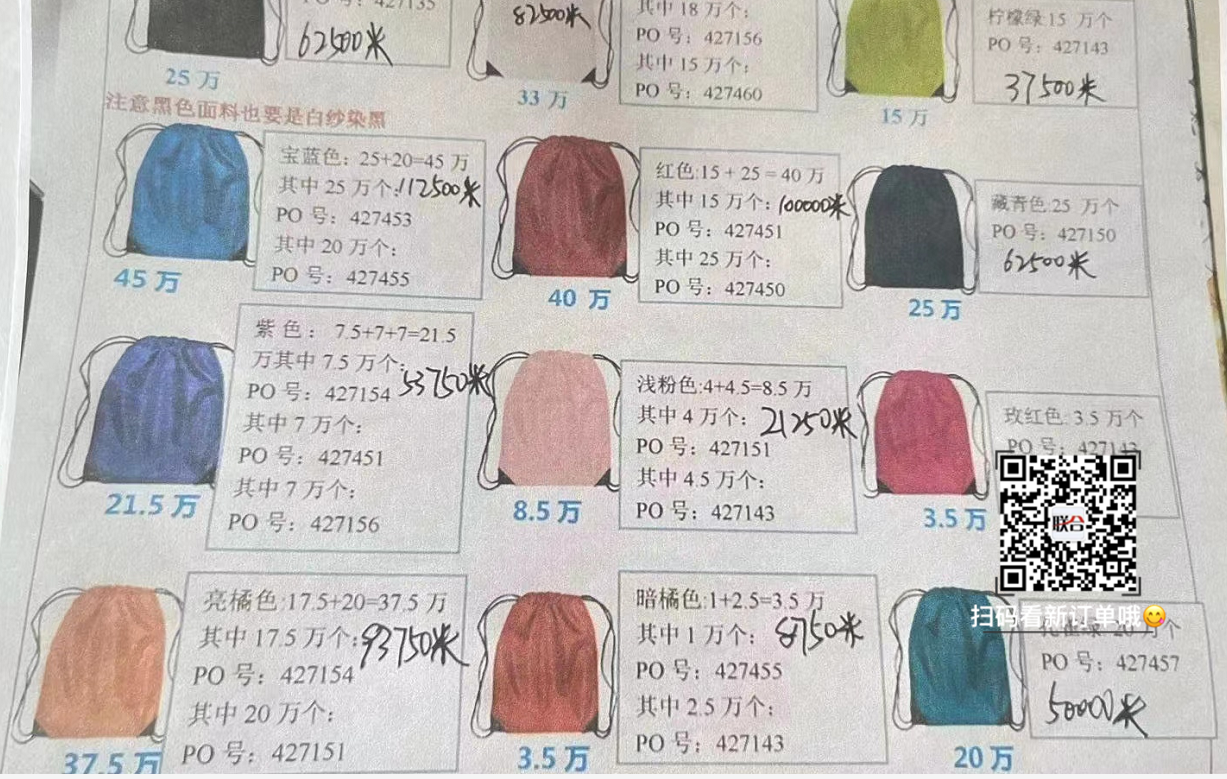 PO 号：427135
62500米
25 万
82500米
33 万
其中 18 万个：
PO 号：427156
其中 15 万个：
PO 号：427460
15 万
柠檬绿:15 万个
PO 号：427143
37500米
注意黑色面料也要是白纱染黑
宝蓝色：25+20=45 万
其中 25 万个:112500米
PO 号：427453
其中 20 万个：
PO 号：427455
45 万
红色:15 + 25 = 40 万
其中 15 万个：100000米
PO 号：427451
其中 25 万个：
PO 号：427450
40 万
藏青色:25 万个
PO 号：427150
62500米
25 万
紫 色： 7.5+7+7=21.5
万其中 7.5 万个：
PO 号：427154 53750米
其中 7 万个：
PO 号：427451
其中 7 万个：
PO 号：427156
21.5 万
浅粉色:4+4.5=8.5 万
其中 4 万个：21250米
PO 号：427151
其中 4.5 万个：
PO 号：427143
8.5 万
玫红色:3.5 万个
PO 号：427143
3.5 万
联合
扫码看新订单哦😋
亮橘色:17.5+20=37.5 万
其中 17.5 万个:93750米
PO 号：427154
其中 20 万个：
PO 号：427151
37.5 万
暗橘色:1+2.5=3.5 万
其中 1 万个：8750米
PO 号：427455
其中 2.5 万个：
PO 号：427143
3.5 万
20 万个
PO 号：427457
50000米
20 万